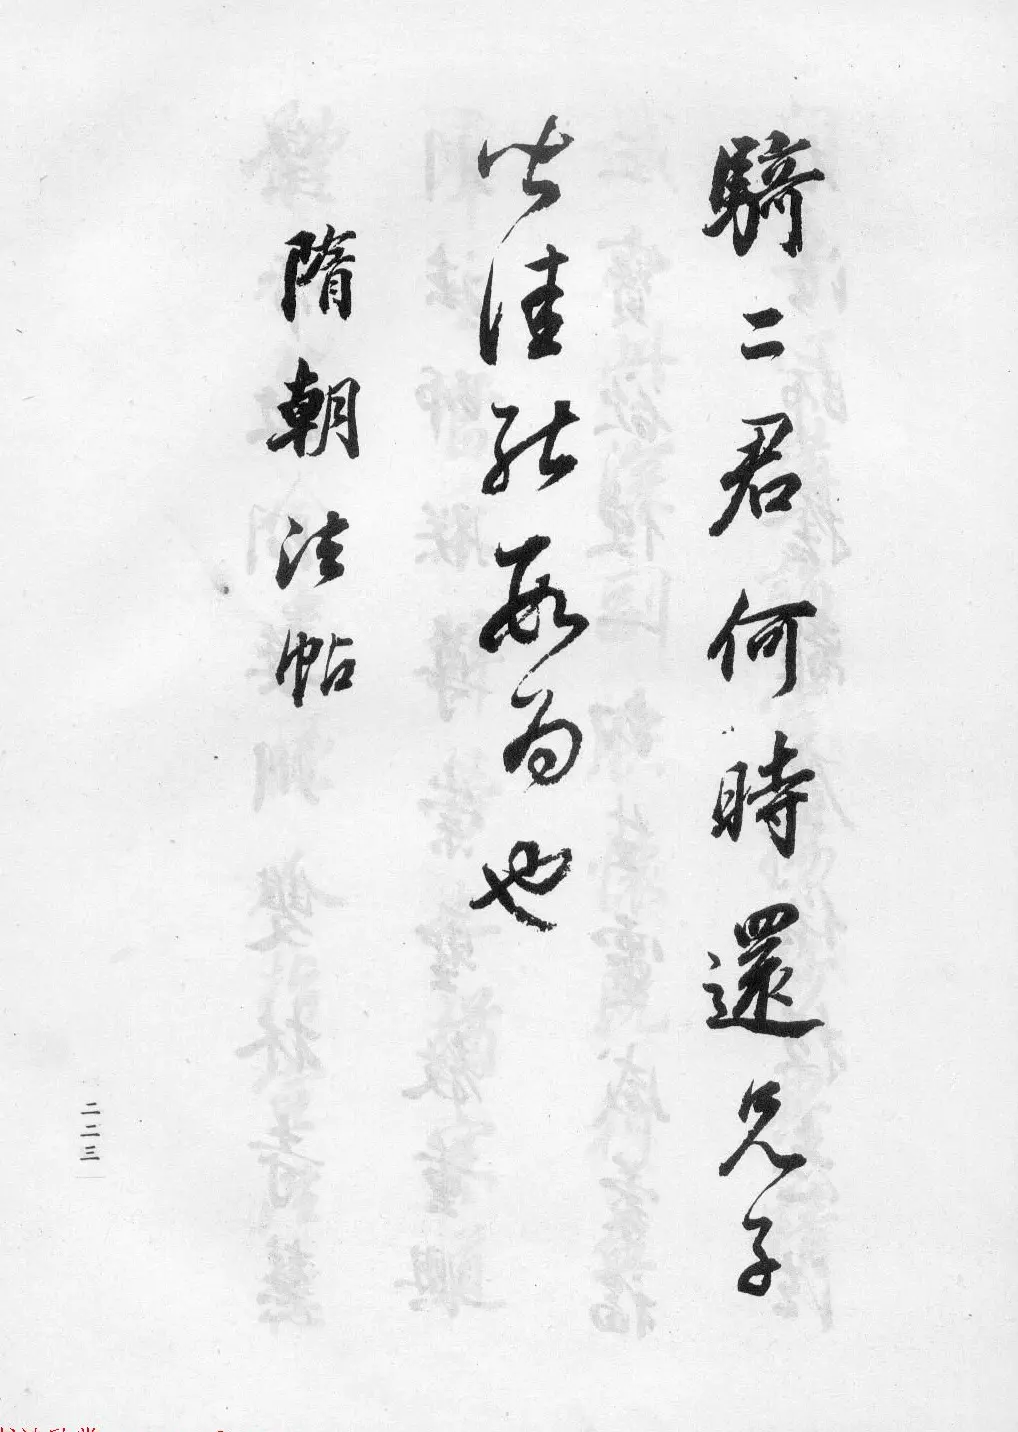 騎二君何時還兄子
皆佳能數面也
隋朝法帖
二二三